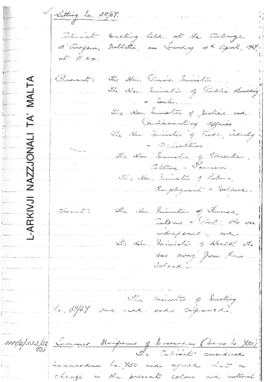 Sitting No. 38/67.
Cabinet meeting held at the Auberge
d'Aragon, Valletta, on Tuesday 4th April, 1967,
at 11 a.m.
Present: The Hon. Prime Minister
The Hon. Minister of Public Building
& Works.
The Hon. Minister of Justice and
Parliamentary Affairs
The Hon. Minister of Trade, Industry
& Agriculture
The Hon. Minister of Education,
Culture & Tourism
The Hon. Minister of Labour,
Employment & Welfare.
Absent: The Hon. Minister of Finance,
Customs & Port. He was
indisposed, and
The Hon. Minister of Health. He
was away from the
Island.
The minutes of Meeting
No. 37/67 were read and confirmed.
Summer Uniforms of (Memo No. 450)
The Cabinet considered
memorandum No. 450 and agreed that a
change in the present colour and material
L-ARKIVJI NAZZJONALI TA' MALTA